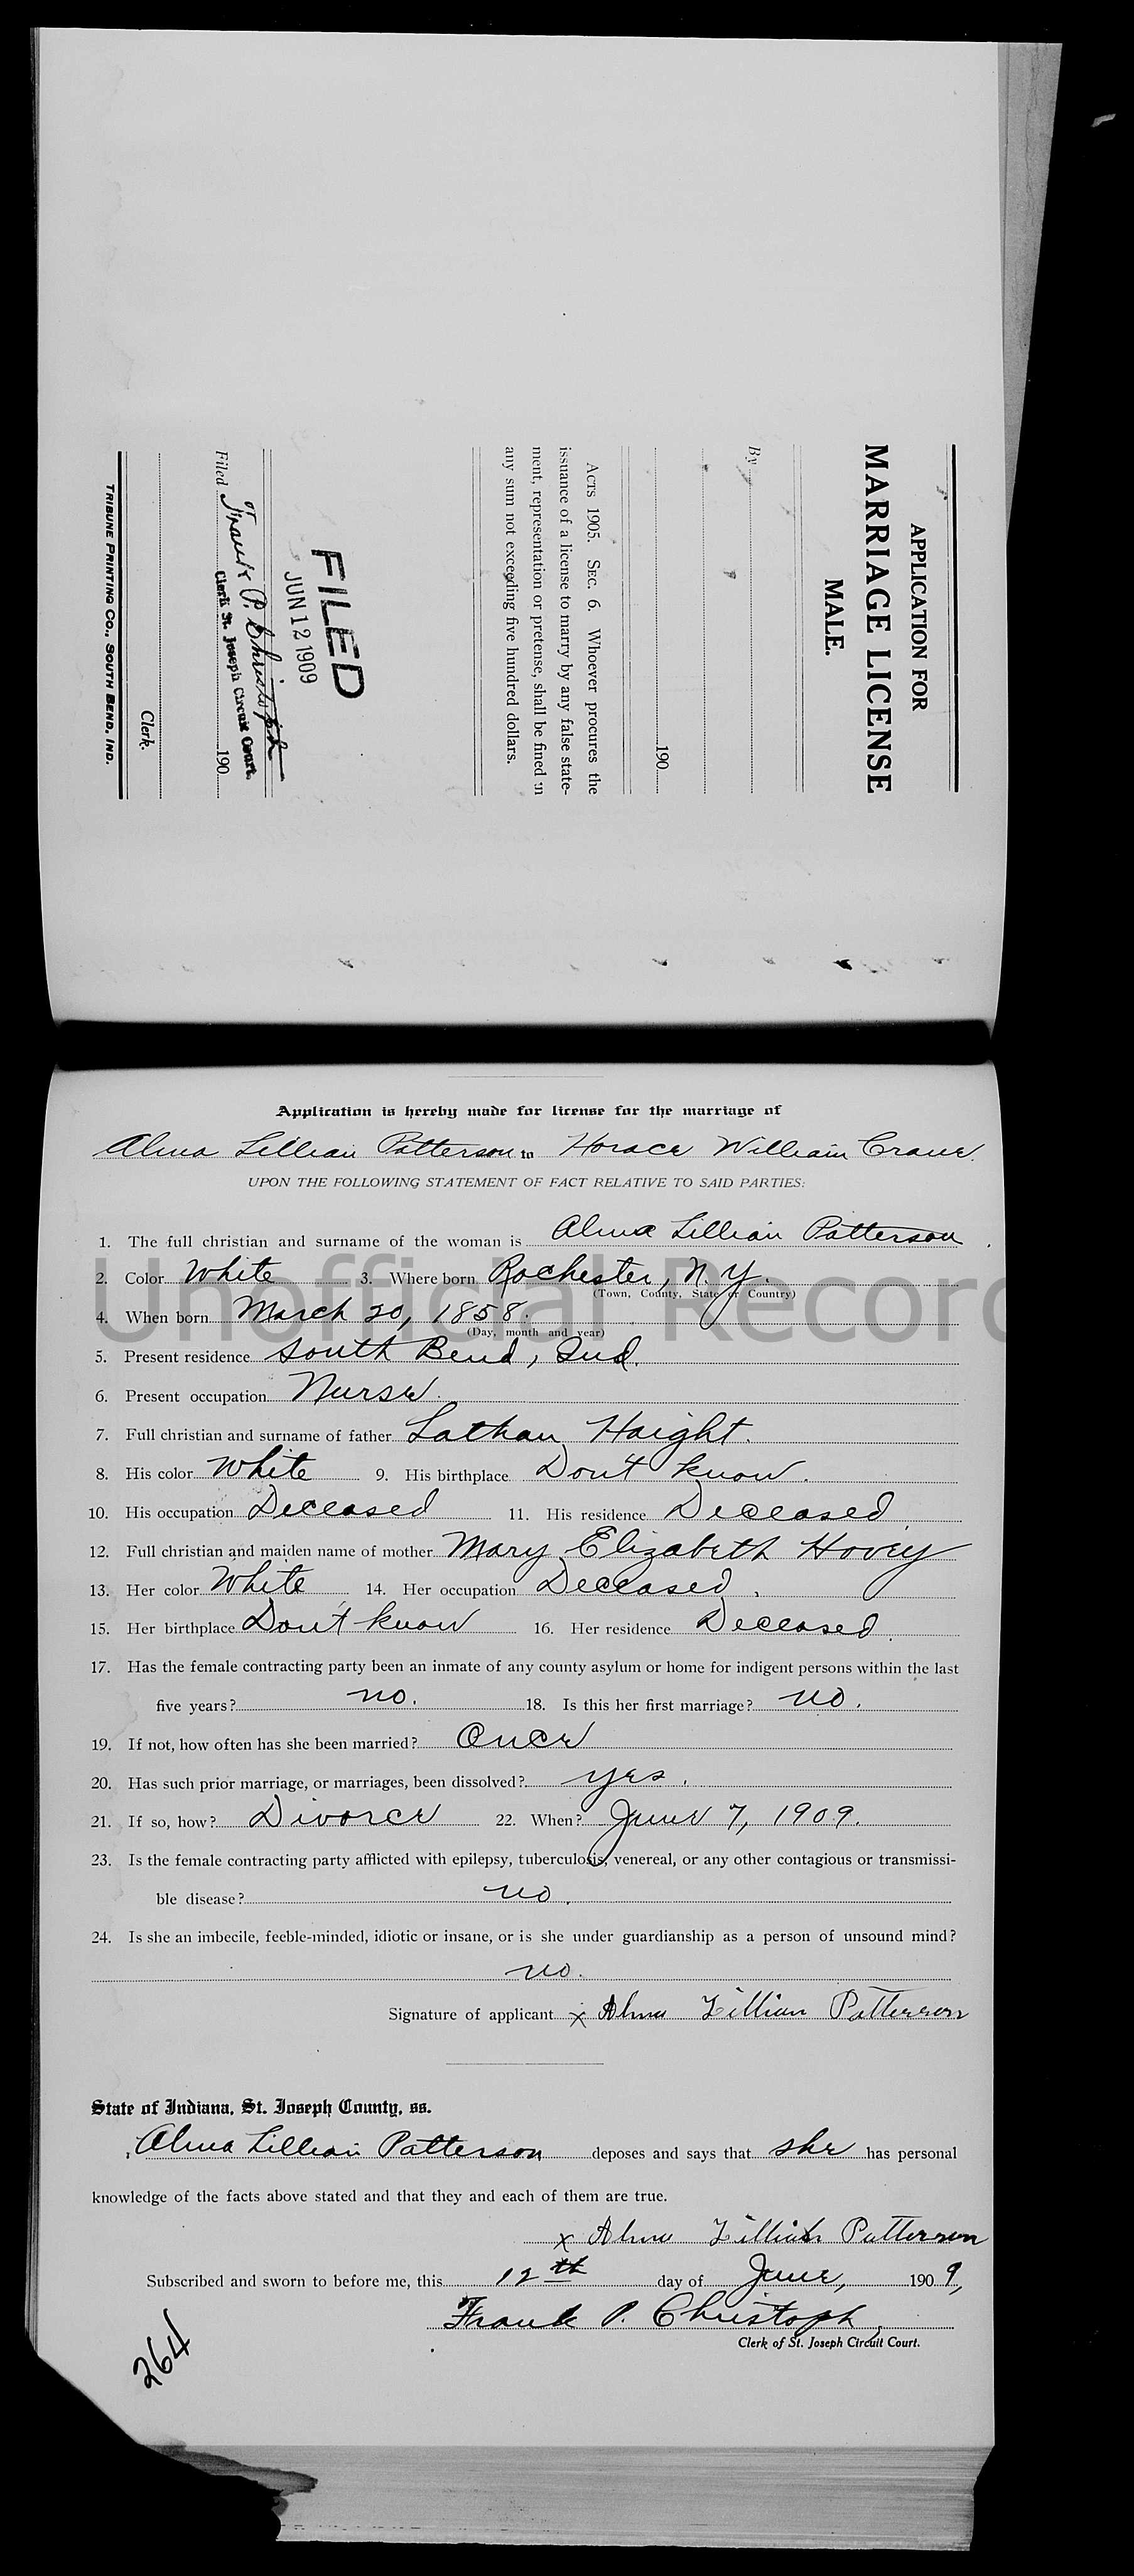 APPLICATION FOR
MARRIAGE LICENSE
MALE.
By
190
ACTS 1905. SEC. 6. Whoever procures the
issuance of a license to marry by any false state-
ment, representation or pretense, shall be fined in
any sum not exceeding five hundred dollars.
FILED
JUN 12 1909
Frank P. Christoph
Clerk St. Joseph Circuit Court.
Filed 190
Clerk.
TRIBUNE PRINTING CO., SOUTH BEND, IND.
Application is hereby made for license for the marriage of
Alma Lillian Patterson to Horace William Crane.
UPON THE FOLLOWING STATEMENT OF FACT RELATIVE TO SAID PARTIES:
1. The full christian and surname of the woman is Alma Lillian Patterson
2. Color White 3. Where born Rochester, N.Y.
(Town, County, State or Country)
4. When born March 20, 1858.
(Day, month and year)
Unofficial Record
5. Present residence South Bend, Ind.
6. Present occupation Nurse.
7. Full christian and surname of father Lathan Haight.
8. His color White 9. His birthplace Don't know.
10. His occupation Deceased 11. His residence Deceased
12. Full christian and maiden name of mother Mary Elizabeth Hovey
13. Her color White 14. Her occupation Deceased.
15. Her birthplace Don't know 16. Her residence Deceased.
17. Has the female contracting party been an inmate of any county asylum or home for indigent persons within the last
five years? no. 18. Is this her first marriage? no.
19. If not, how often has she been married? Once
20. Has such prior marriage, or marriages, been dissolved? yes.
21. If so, how? Divorce 22. When? June 7, 1909.
23. Is the female contracting party afflicted with epilepsy, tuberculosis, venereal, or any other contagious or transmissi-
ble disease? no.
24. Is she an imbecile, feeble-minded, idiotic or insane, or is she under guardianship as a person of unsound mind?
no.
Signature of applicant x Alma Lillian Patterson
State of Indiana, St. Joseph County, ss.
Alma Lillian Patterson deposes and says that she has personal
knowledge of the facts above stated and that they and each of them are true.
x Alma Lillian Patterson
Subscribed and sworn to before me, this 12th day of June, 1909,
Frank P. Christoph
Clerk of St. Joseph Circuit Court.
264